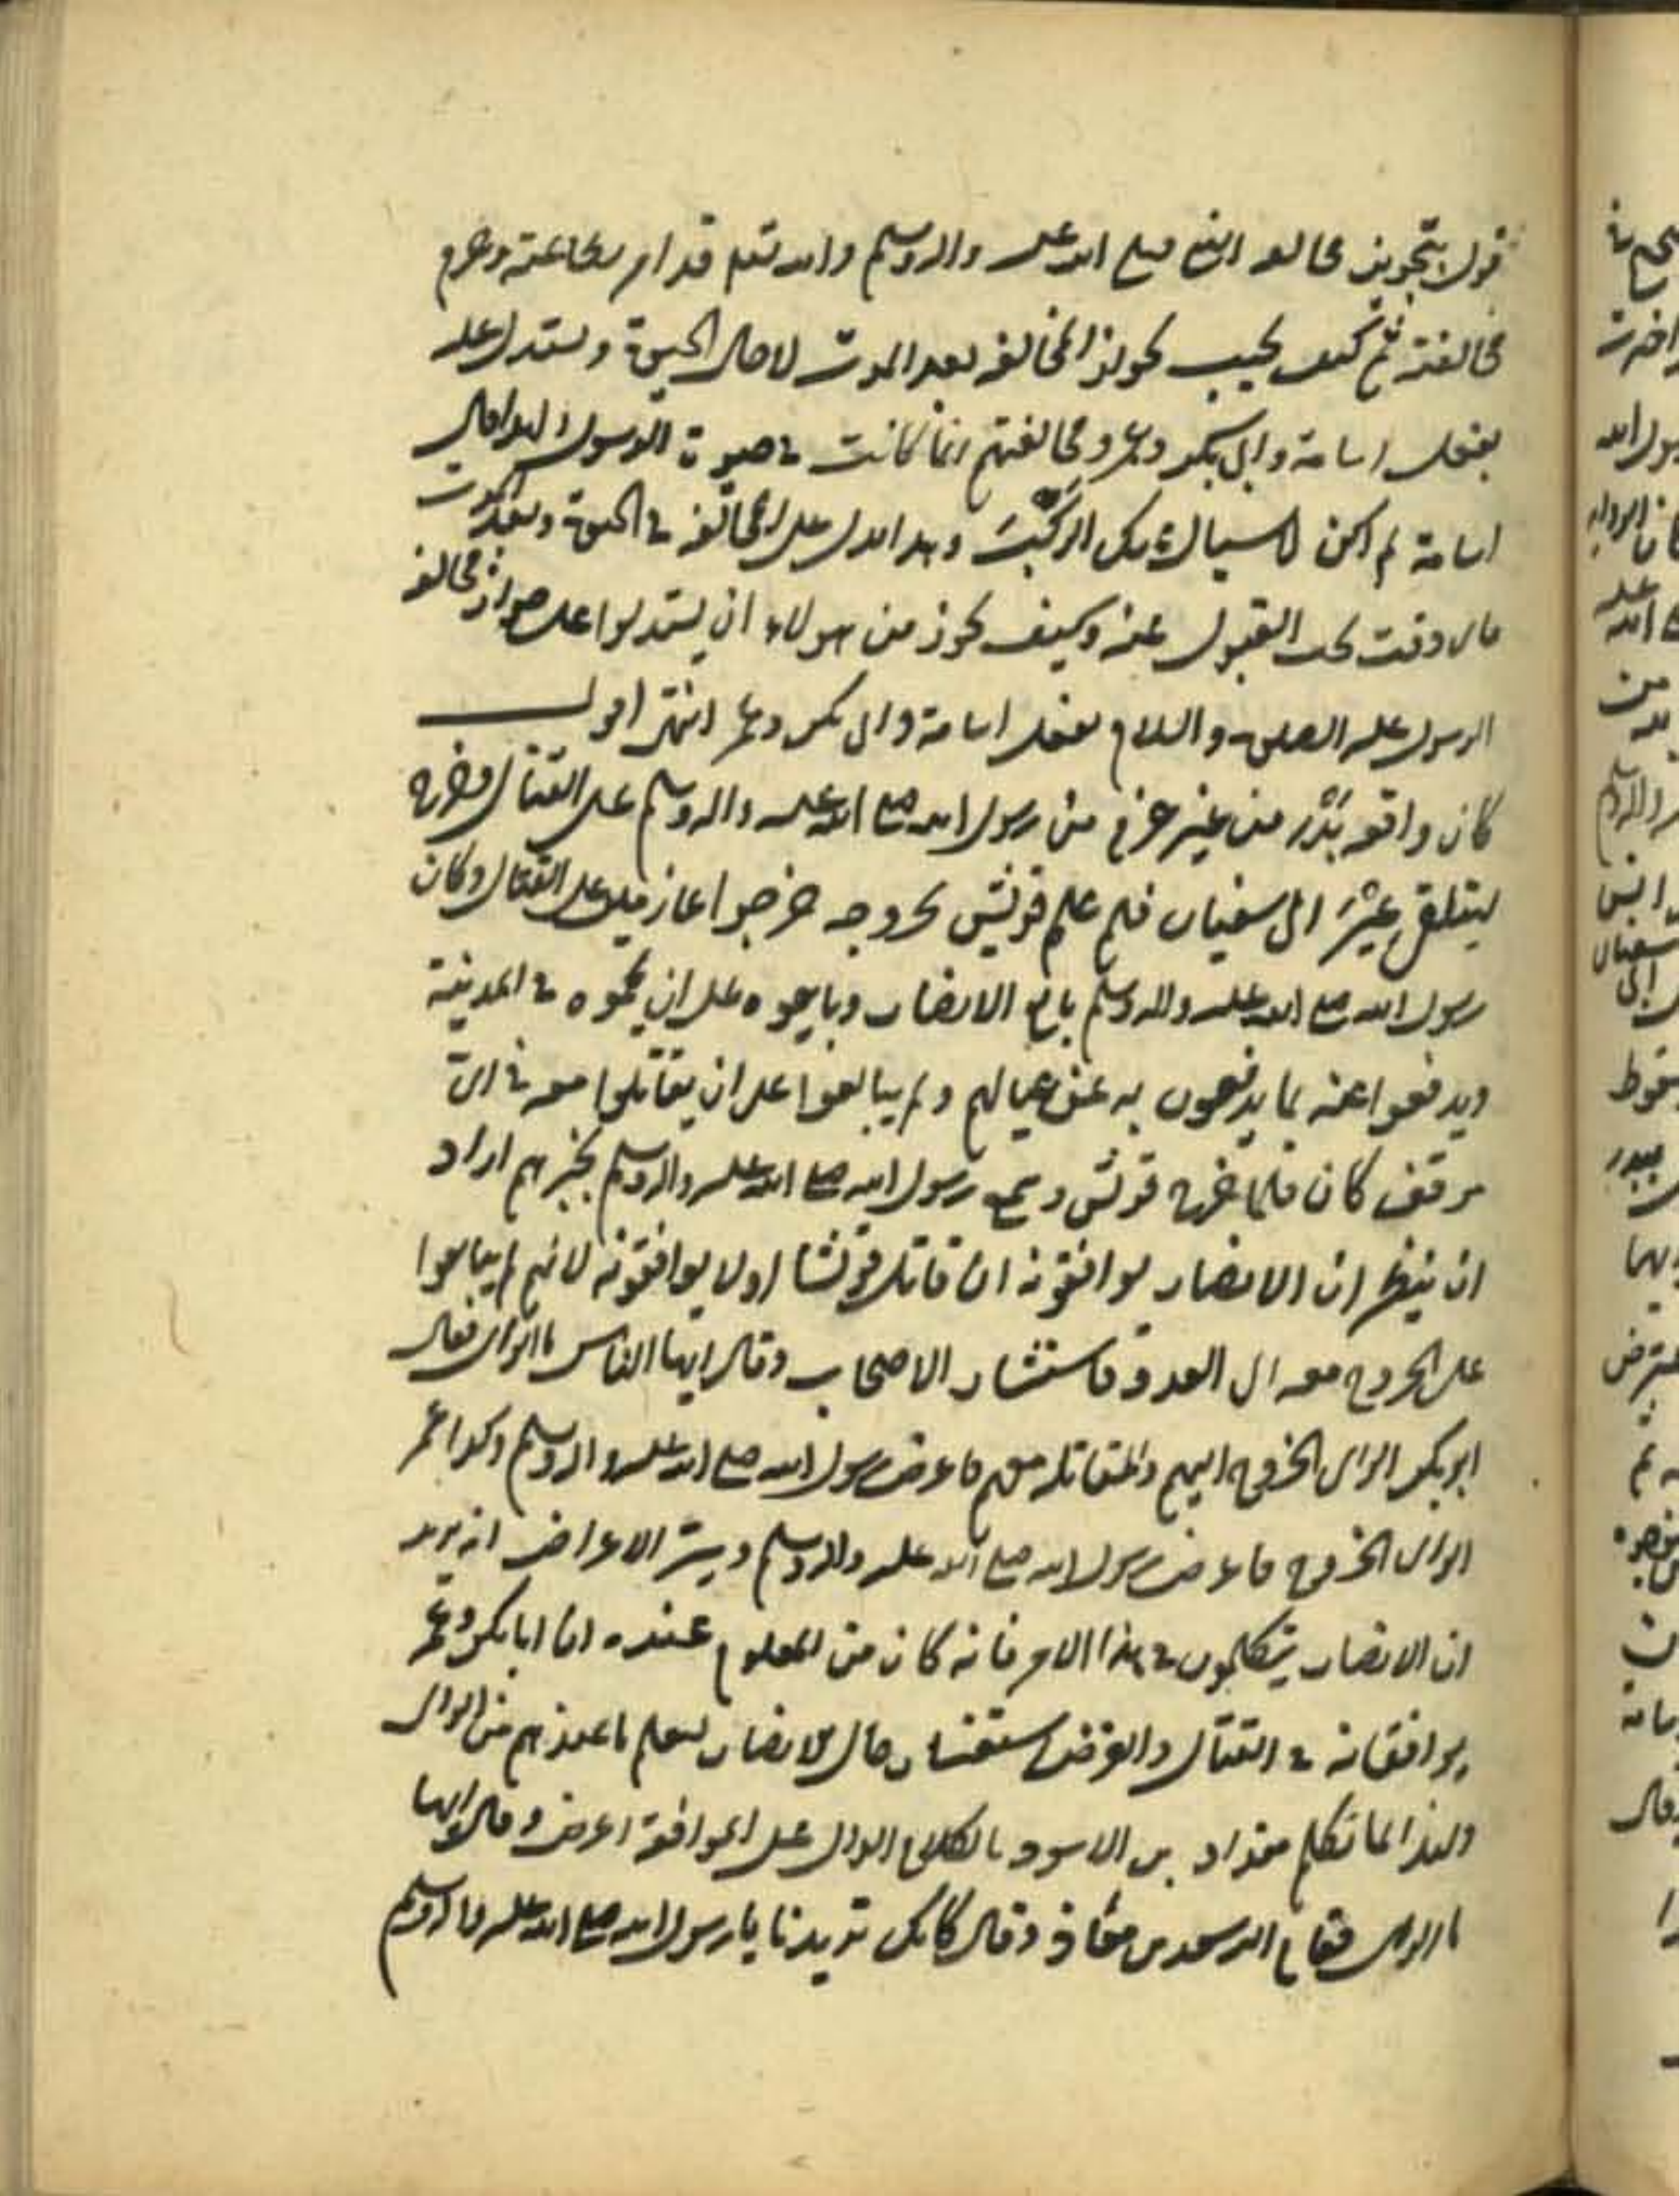 قول بتجويز مخالفة النبي صلى الله عليه واله وسلم والله تعالى قد امر بطاعته وحرم
مخالفته ثم كيف يجيب بجواز المخالفه بعد الموت لا حال الحيوة ويستدل عليه
بفعل اسامة وابي بكر وعمر ومخالفتهم انما كانت في حيوة الرسول
اسامة لم اكن لاسال عنك الركب وهذا يدل على المخالفه في الحيوة وبعد الموت
وكيف يجوز من هولاء ان يستدلوا على جواز مخالفه
الرسول عليه الصلوة والسلام بفعل اسامة وابي بكر وعمر انتهى اقول
كان واقعه بدر من غير عزم من رسول الله صلى الله عليه واله وسلم على القتال وخرج
ليتلقى عير ابي سفيان فلم علم قريش بخروجه خرجوا عازمين على القتال وكان
رسول الله صلى الله عليه واله وسلم بايع الانصار وبايعوه على ان يحموه في المدينة
ويدفعوا عنه بما يدفعون به عن عيالهم ولم يبايعوا على ان يقاتلوا معه في اي
موقف كان فلما خرج قريش وسمع رسول الله صلى الله عليه واله وسلم بخبرهم اراد
ان ينظر ان الانصار يوافقونه ان قاتل قريشا او لا يوافقونه لانهم لم يبايعوا
على الخروج معه الى العدو فاستشار الاصحاب وقال ايها الناس ما الراي فقال
ابو بكر الراي الخروج اليهم والمقاتله معهم فاعرض رسول الله صلى الله عليه واله وسلم وكذا عمر
الراي الخروج فاعرض رسول الله صلى الله عليه واله وسلم وسر الاعراض انه يريد
ان الانصار يتكلمون في هذا الامر فانه كان من المعلوم عنده ان ابا بكر وعمر
يوافقانه في القتال والغرض استفسار حال الانصار ليعلم ما عندهم من الراي
ولهذا لما تكلم مقداد بن الاسود بالكلام الدال على الموافقة اعرض وقال ايها
ما الراي فقام اليه سعد بن معاذ وقال كانك تريدنا يا رسول الله صلى الله عليه واله وسلم